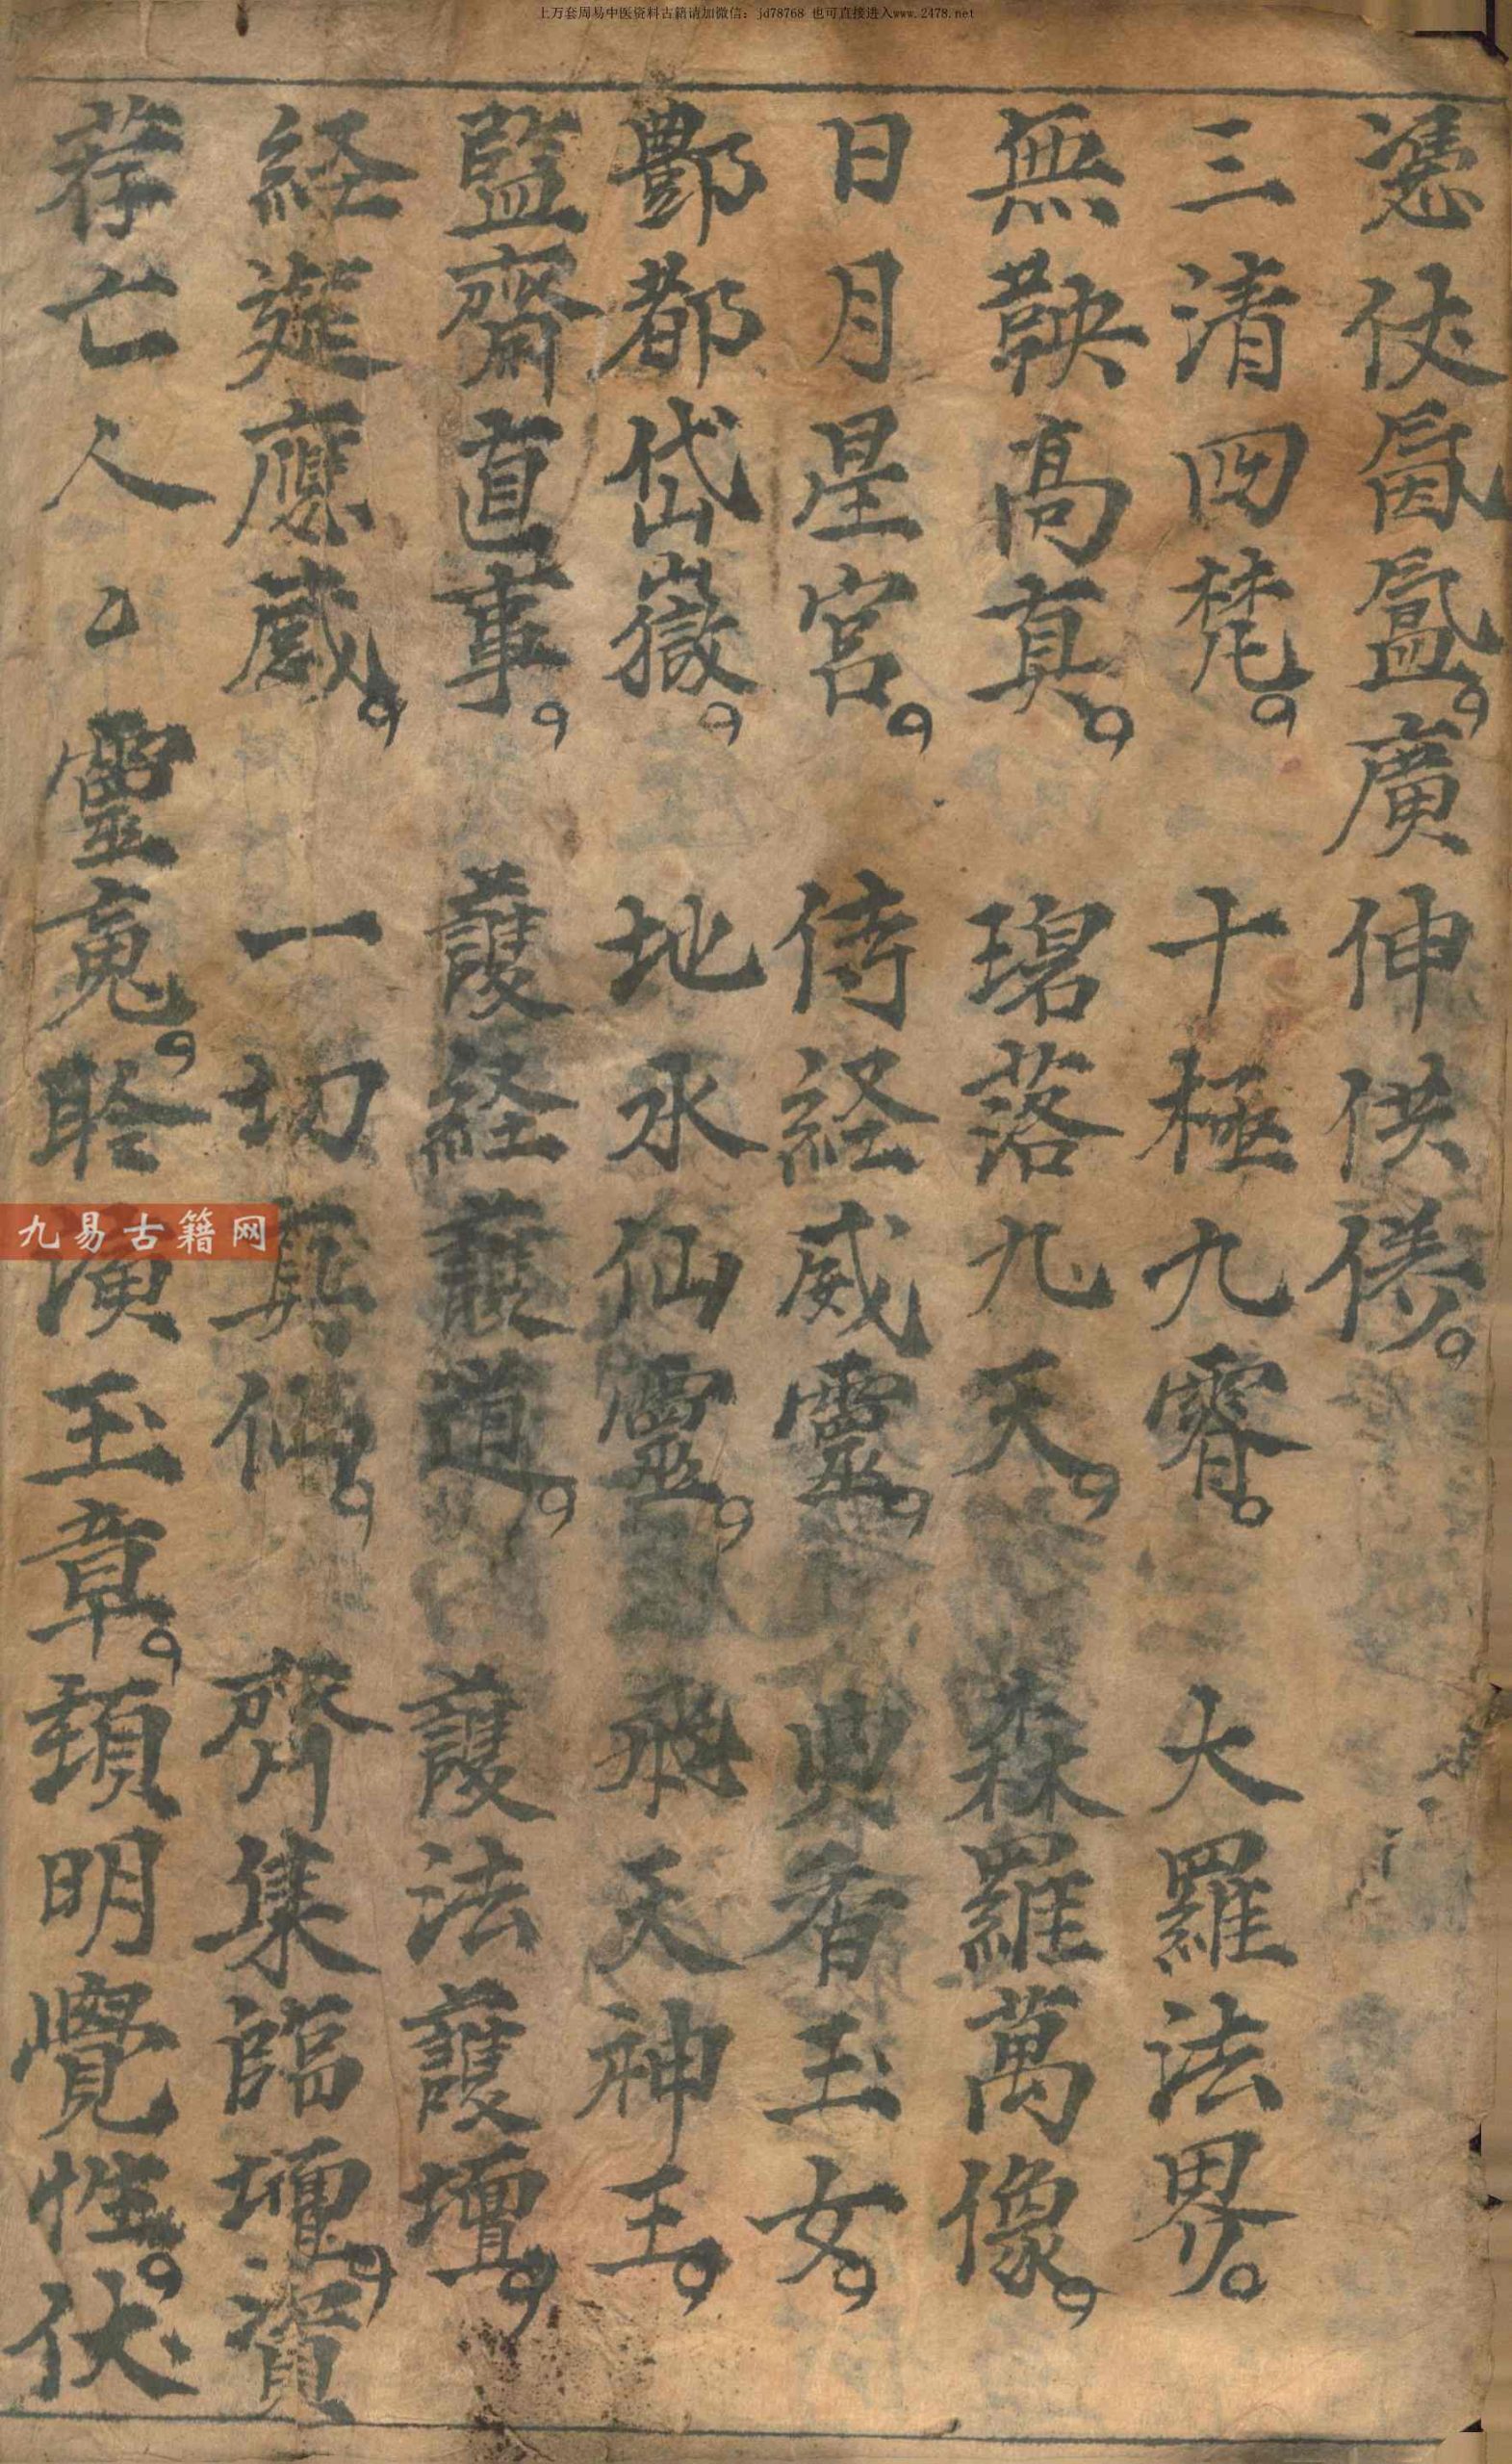 上万套周易中医资料古籍请加微信：jd78768 也可直接进入www.2478.net
憑仗 廣伸供俻
三清四梵 十極九霄 大羅法界
無鞅高真 碧落九天 森羅萬像
日月星宮 侍経威靈 典香玉女
酆都岱嶽 地水仙靈 飛天神王
監齋直事 護経護道 護法護壇
経筵應感 一切真仙 齊集臨壇資
荐亡人 靈䰟聆演玉章頓明覺性伏
九易古籍网